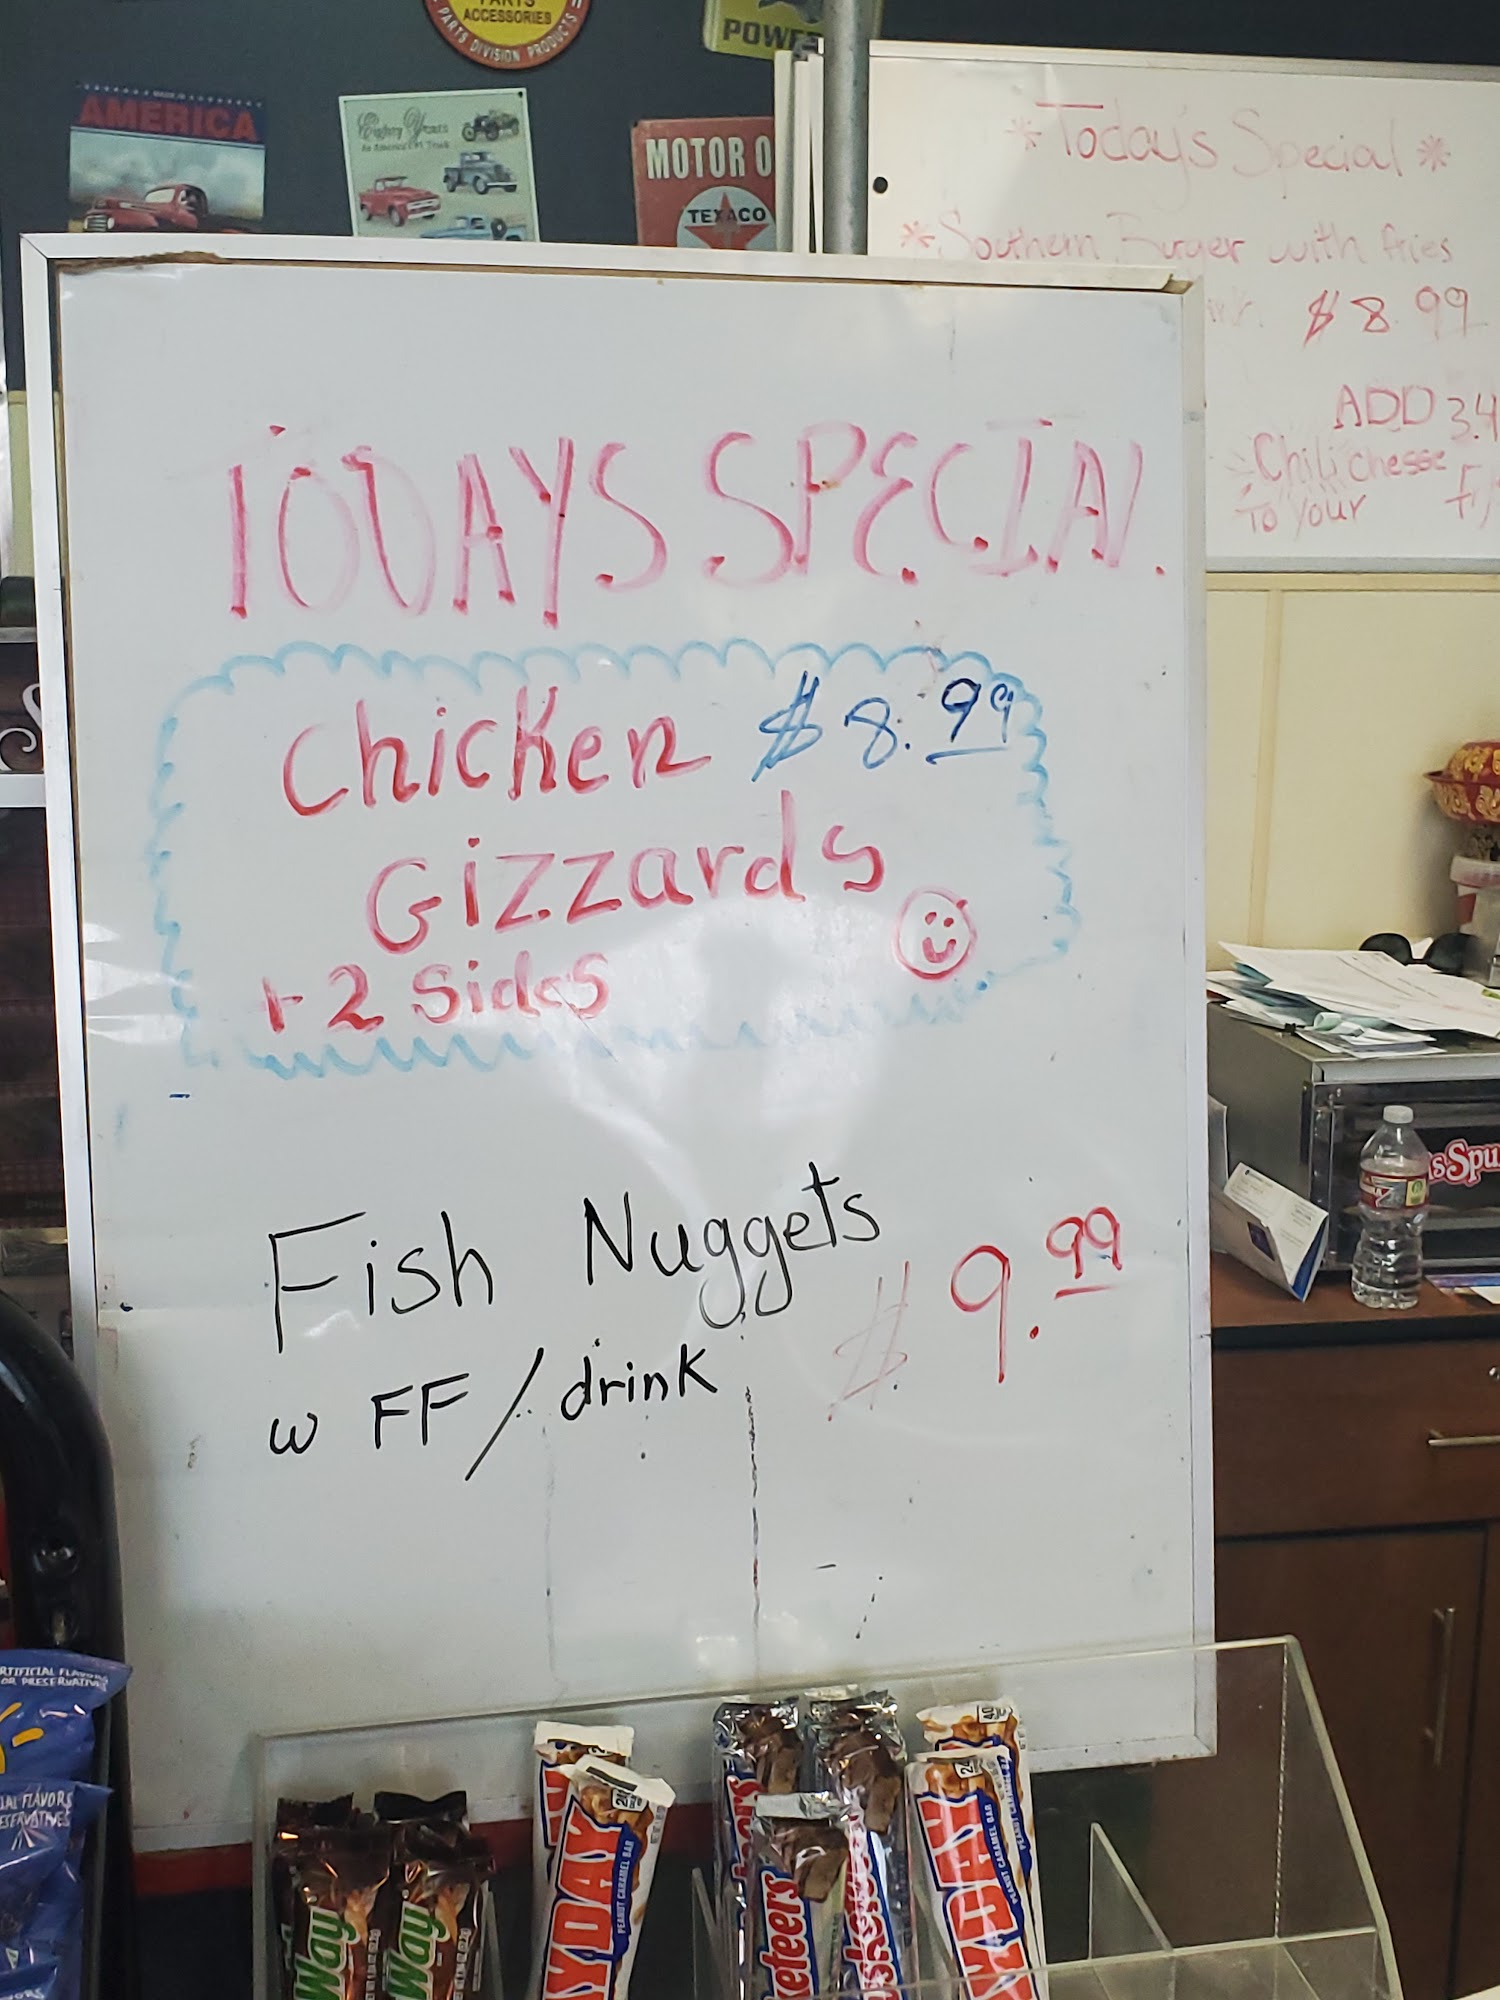 PARTS
ACCESSORIES
PARTS DIVISION PRODUCTS
POWER
MADE IN
AMERICA
Eighty Years
MOTOR O
TEXACO
*Today's Special*
*Southern Burger with fries
$8.99
ADD 3.4
Chili chesse
To your
TODAYS SPECIAL
Chicken $8.99
Gizzards
+2 Sides
Fish Nuggets
$9.99
w FF/drink
sSpu
RTIFICIAL FLAVORS
OR PRESERVATIVES
IAL FLAVORS
ESERVATIVES
Way
Way
YDAY
PEANUT CARAMEL BAR
keteers
YDAY
PEANUT CARAMEL BAR